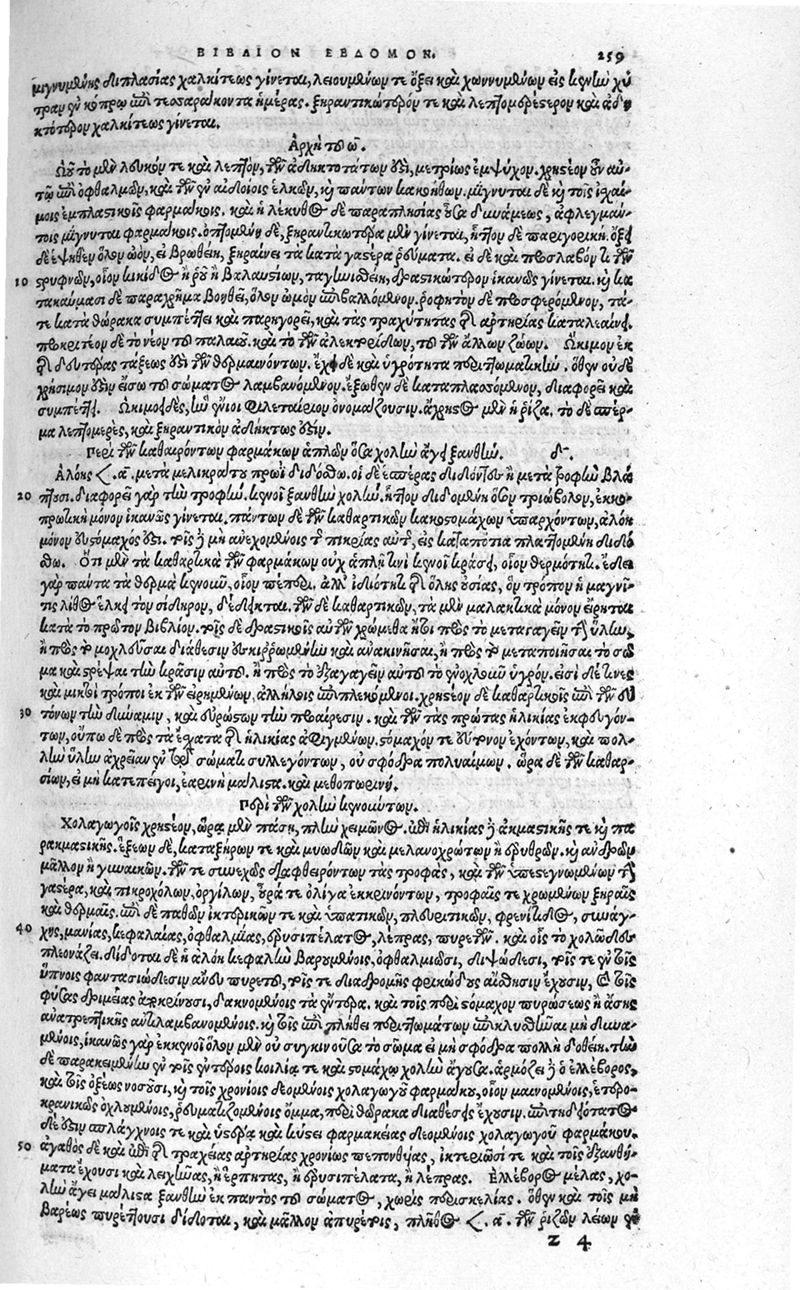 ΒΙΒΛΙΟΝ ΕΒΔΟΜΟΝ. 259
μιγνυμένης διπλασίας χαλκίτεως γίνεται, λειουμένων τε ὄξει καὶ χωννυμένων εἰς καινὴν χύ
τραν ἐν κόπρῳ ἐπὶ τεσσαράκοντα ἡμέρας. ξηραντικώτερόν τε καὶ λεπτομερέστερον καὶ ἀδη
κτότερον χαλκίτεως γίνεται.
Ἀρχὴ τοῦ ω.
Ὠοῦ τὸ μὲν λευκόν τε καὶ λεπτὸν, τῶν ἀδηκτοτάτων ἐστὶ, μετρίως ἐμψύχον. χρηστέον οὖν αὐ-
τῷ ἐπὶ ὀφθαλμῶν, καὶ τῶν ἐν αἰδοίοις ἑλκῶν, καὶ πάντων κακοήθων. μίγνυται δὲ καὶ τοῖς ἰσχαί
μοις ἐμπλαστικοῖς φαρμάκοις. καὶ ἡ λέκυθος δὲ παραπλησίας οὖσα δυνάμεως, ἀφλεγμάν-
τοις μίγνυται φαρμάκοις. ὀπτομένη δὲ, ξηραντικωτέρα μὲν γίνεται, ἧττον δὲ παρηγορική. ὄξει
δὲ ἑψηθὲν ὅλον ὠὸν, εἰ βρωθείη, ξηραίνει τὰ κατὰ γαστέρα ῥεύματα. εἰ δὲ καὶ προσλάβοι τι τῶν
10 στρυφνῶν, οἷον κικίδος ἢ ῥοῦ ἢ βαλαυστίων, ταγηνισθείη, δραστικώτερον ἱκανῶς γίνεται. καὶ κα
τακαύμασι δὲ παραχρῆμα βοηθεῖ, ὅλον ὠμὸν ἐπιβαλλόμενον. ῥοφητὸν δὲ προσφερόμενον, τά-
τε κατὰ θώρακα συμπέττει καὶ παρηγορεῖ, καὶ τὰς τραχύτητας τῆς ἀρτηρίας καταλεαίνει.
προκριτέον δὲ τὸ νέον τοῦ παλαιοῦ. καὶ τὸ τῶν ἀλεκτορίδων, τοῦ τῶν ἄλλων ζώων. Ὤκιμον ἐκ
τῆς δευτέρας τάξεως ἐστὶ τῶν θερμαινόντων. ἔχει δὲ καὶ ὑγρότητα περιττωματικὴν. ὅθεν οὐδὲ
χρήσιμον ἐστὶν εἴσω τοῦ σώματος λαμβανόμενον. ἔξωθεν δὲ καταπλασσόμενον, διαφορεῖ καὶ
συμπέττει. Ὠκιμοειδὲς, ἣν ἔνιοι φιλεταίριον ὀνομάζουσιν. ἄχρηστος μὲν ἡ ῥίζα. τὸ δὲ σπέρ-
μα λεπτομερὲς, καὶ ξηραντικὸν ἀδήκτως ἐστίν.
Περὶ τῶν καθαιρόντων φαρμάκων ἁπλῶν ὅσα χολὴν ἄγει ξανθήν. δ.
Ἀλόης < α. μετὰ μελικράτου πρωῒ διδόσθω. οἱ δὲ ἑσπέρας διδόντες ἢ μετὰ τροφὴν βλά
20 πτουσι. διαφορεῖ γὰρ τὴν τροφήν. κενοῖ ξανθὴν χολήν. ἧττον διδομένη ὅσον τριώβολον, ἐκκο-
πρωτικὴ μόνον ἱκανῶς γίνεται. πάντων δὲ τῶν καθαρτικῶν κακοστομάχων ὑπαρχόντων, ἀλόη
μόνον εὐστόμαχός ἐστι. τοῖς ἢ μὴ ἀνεχομένοις τῆς πικρίας αὐτῆς, εἰς καταπότια πλαττομένη διδό
σθω. Ὅτι μὲν τὰ καθαρτικὰ τῶν φαρμάκων οὐχ ἁπλῇ τινὶ κενοῖ κράσει, οἷον θερμότητι. ἔδει
γὰρ πάντα τὰ θερμὰ κενοῦν, οἷον πέπερι. ἀλλ' ἰδιότητι τῆς ὅλης οὐσίας, ὃν τρόπον ἡ μαγνῆ-
τις λίθος ἕλκει τὸν σίδηρον, δέδεικται. τῶν δὲ καθαρτικῶν, τὰ μὲν μαλακτικὰ μόνον εἴρηται
κατὰ τὸ πρῶτον βιβλίον. τοῖς δὲ δραστικοῖς αὐτῶν χρώμεθα ἤτοι πρὸς τὸ μεταγαγεῖν τὴν ὕλην,
ἢ πρὸς τὸ μοχλεῦσαι διάθεσιν ἐσκιρρωμένην καὶ ἀνακινῆσαι, ἢ πρὸς τὸ μεταποιῆσαι τὸ σῶ
μα καὶ τρέψαι τὴν κρᾶσιν αὐτοῦ. ἢ πρὸς τὸ ἐξαγαγεῖν αὐτοῦ τὸ ἐνοχλοῦν ὑγρόν. εἰσὶ δέ τινες
καὶ μικτοὶ τρόποι ἐκ τῶν εἰρημένων, ἀλλήλοις ἐπιπλεκόμενοι. χρηστέον δὲ καθαρτικοῖς ἐπὶ τῶν εὐ
30 τόνων τὴν δύναμιν, καὶ εὐρώστων τὴν προαίρεσιν. καὶ τῶν τὰς πρώτας ἡλικίας ἐκφευγόν-
των, οὔπω δὲ πρὸς τὰ ἔσχατα τῆς ἡλικίας ἀφιγμένων. στόμαχόν τε εὔτονον ἐχόντων, καὶ πολ-
λὴν ὕλην ἀχρεῖαν ἐν τῷ σώματι συλλεγόντων, οὐ σφόδρα πολυαίμων. ὥρα δὲ τῶν καθαρ-
σίων, εἰ μὴ κατεπείγοι, ἐαρινὴ μάλιστα. καὶ μεθοπωρινή.
Περὶ τῶν χολὴν κενούντων.
Χολαγωγοῖς χρηστέον, ὥρᾳ μὲν πάσῃ, πλὴν χειμῶνος. ἐπὶ ἡλικίας δὲ ἀκμαστικῆς τε καὶ πα
ρακμαστικῆς. ἕξεων δὲ, καταξήρων τε καὶ μυωδῶν καὶ μελανοχρώτων ἢ ἐρυθρῶν. καὶ ἀνδρῶν
μᾶλλον ἢ γυναικῶν. τῶν τε συνεχῶς διαφθειρόντων τὰς τροφάς, καὶ τῶν ὑπεστεγνωμένων τὴν
γαστέρα, καὶ πικροχόλων, ὀργίλων, οὖρά τε ὀλίγα ἐκκρινόντων, τροφαῖς τε χρωμένων ξηραῖς
καὶ θερμαῖς. ἐπὶ δὲ παθῶν ἰκτερικῶν τε καὶ ἡπατικῶν, πλευριτικῶν, φρενίτιδος, συνάγ-
40 χης, μανίας, κεφαλαίας, ὀφθαλμίας, ἐρυσιπέλατος, λέπρας, πυρετῶν. καὶ οἷς τὸ χολῶδες
πλεονάζει. δίδοται δὲ ἡ ἀλόη κεφαλὴν βαρουμένοις, ὀφθαλμιῶσι, διψώδεσι, τοῖς τε ἐν τοῖς
ὕπνοις φαντασιώδεσιν ἄνευ πυρετοῦ, τοῖς τε διαδρομῆς φρικώδους αἴσθησιν ἔχουσιν, καὶ τοῖς
φύζας δριμείας ἀποκρίνουσι, δακνομένοις τὰ ἔντερα. καὶ τοῖς περὶ στόμαχον πυρώσεως ἢ ἄσης
ἀνατρεπτικῆς ἀντιλαμβανομένοις. καὶ τοῖς ἐπὶ πλήθει περιττωμάτων ἐπικλυσθῆναι μὴ δυνα-
μένοις, ἱκανῶς γὰρ ἐκκενοῖ ὅλον μὲν οὐ συγκινοῦσα τὸ σῶμα εἰ μὴ σφόδρα πολλὴ δοθείη. τὴν
δὲ παρακειμένην ἐν τοῖς ἐντέροις κοιλίᾳ τε καὶ στομάχῳ χολὴν ἄγουσα. ἁρμόζει δὲ ὁ ἐλλέβορος,
καὶ τοῖς ὀξέως νοσοῦσι, καὶ τοῖς χρονίοις δεομένοις χολαγωγοῦ φαρμάκου, οἷον μαινομένοις, ἑτερο-
κρανικῶς ὀχλουμένοις, ῥευματιζομένοις ὄμμα, περὶ θώρακα διαθέσεις ἔχουσιν. ἐπιτηδειότατος
δέ ἐστιν σπλάγχνοις τε καὶ ὑστέρᾳ καὶ κύστει φαρμακείας δεομένοις χολαγωγοῦ φαρμάκου.
50 ἀγαθὸς δὲ καὶ ἐπὶ τῆς τραχείας ἀρτηρίας χρονίως πεπονθυίας, ἰκτεριῶσί τε καὶ τοῖς ἐξανθή-
ματα ἔχουσι καὶ λειχῆνας, ἢ ἕρπητας, ἢ ἐρυσιπέλατα, ἢ λέπρας. Ἑλλέβορος μέλας, χο-
λὴν ἄγει μάλιστα ξανθὴν ἐκ παντὸς τοῦ σώματος, χωρὶς περισκελίας. ὅθεν καὶ τοῖς μὴ
βαρέως πυρέττουσι δίδοται, καὶ μᾶλλον ἀπυρέτοις, πλῆθος < α. τῶν ῥιζῶν λείων ἐν
Z 4